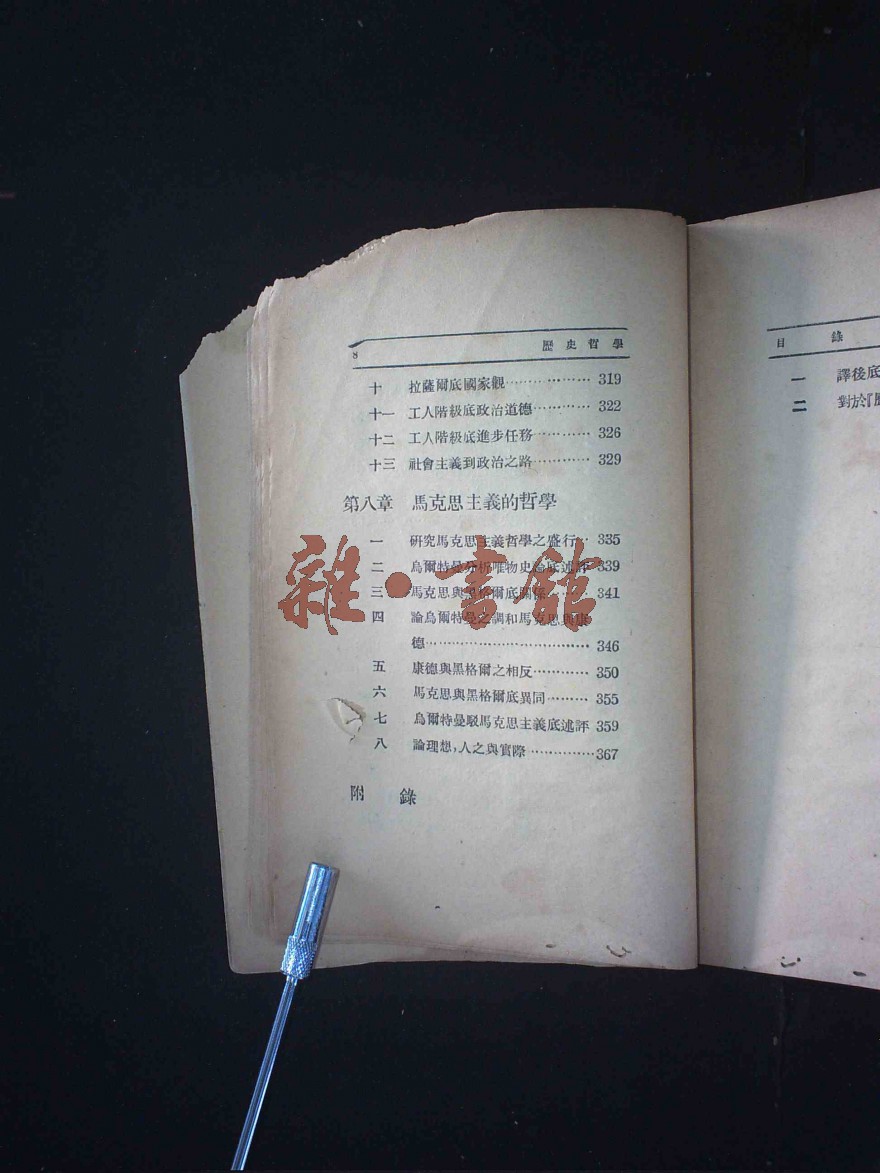 8 歷史哲學
十 拉薩爾底國家觀⋯⋯⋯⋯⋯⋯ 319
十一 工人階級底政治道德⋯⋯⋯⋯ 322
十二 工人階級底進步任務⋯⋯⋯⋯ 326
十三 社會主義到政治之路⋯⋯⋯⋯ 329
第八章 馬克思主義的哲學
一 研究馬克思主義哲學之盛行⋯ 335
二 烏爾特曼分析唯物史論底述評 339
三 馬克思與黑格爾底關係⋯⋯⋯ 341
四 論烏爾特曼之調和馬克思與康
德⋯⋯⋯⋯⋯⋯⋯⋯⋯⋯⋯⋯ 346
五 康德與黑格爾之相反⋯⋯⋯⋯ 350
六 馬克思與黑格爾底異同⋯⋯⋯ 355
七 烏爾特曼駁馬克思主義底述評 359
八 論理想，人之與實際⋯⋯⋯⋯⋯367
附錄
雜·書館
目錄
一 譯後底
二 對於『歷